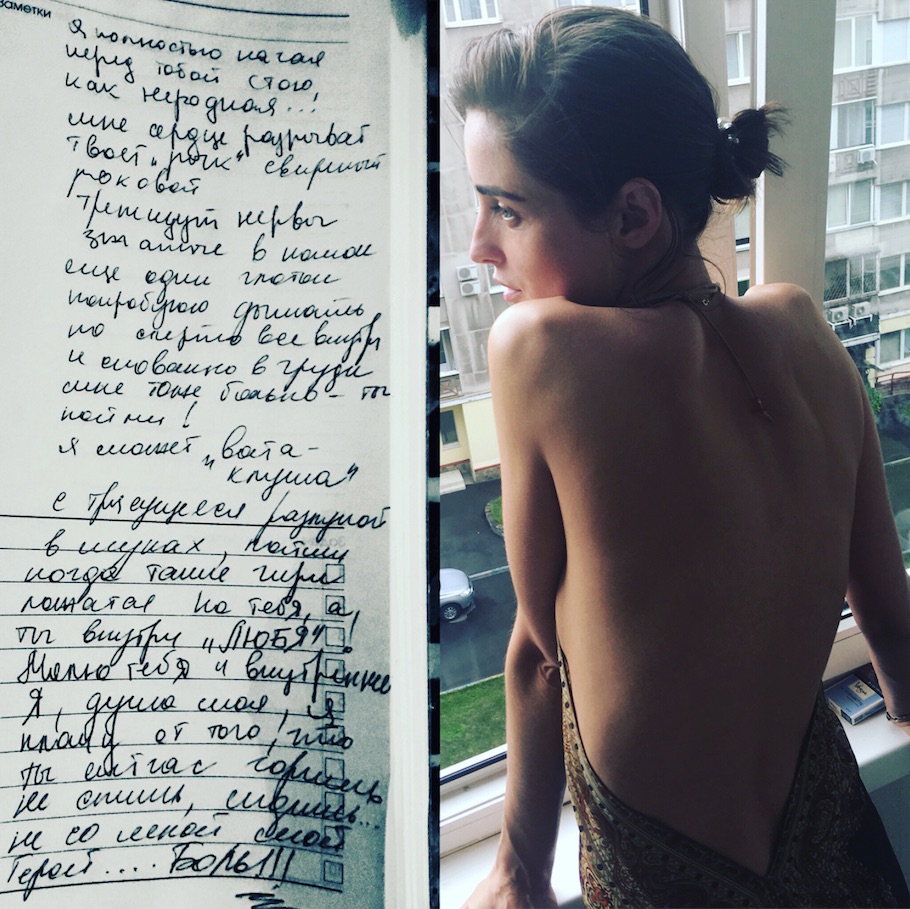 Заметки
Я полностью нагая
перед тобой стою
как неродная...!
мне сердце разрыват
твоет „рык“ свирепый
роковой
Трепещут нервы
зжатые в комок
еще один глоток
попробую дышать
но сперто все внутри
и сковано в груди
мне тоже больно – ты
пойми!
Я может „вата-
клуша“
с трясущееся
в муках, пойми
когда такие гири
ложатся на тебя, а
ты внутри „ЛЮБЯ“!
Молю тебя и внутренне
Я, душа моя, я
плачу от того, что
ты сейчас горишь
не спишь, сидишь...
не со мной мой
Герой.... БОЛЬ!!!